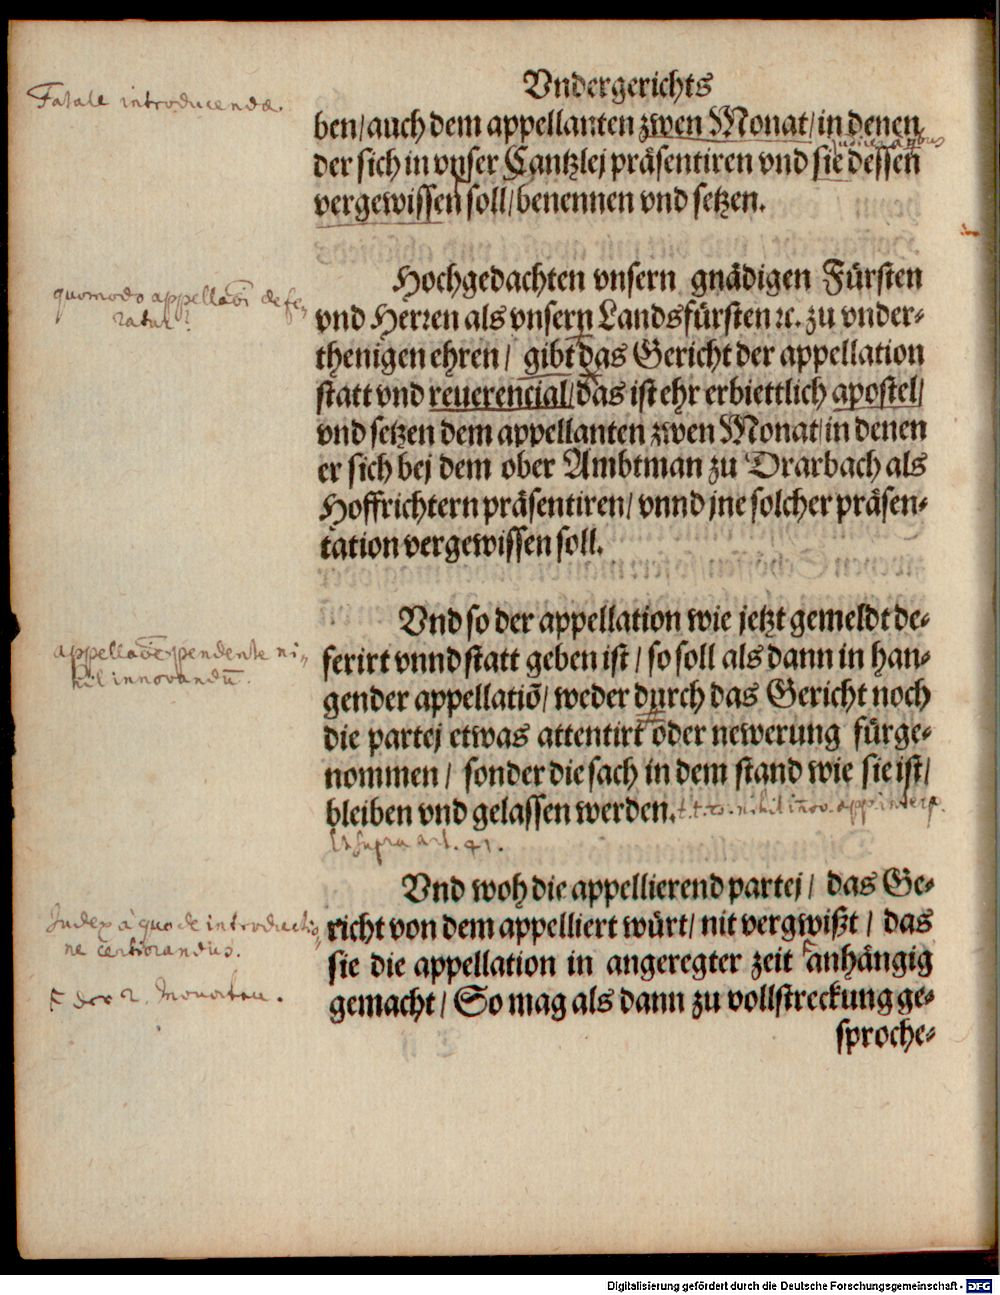 Vndergerichts
Fatale introducendæ.
ben/auch dem appellanten zwen Monat/in denen
der sich in vnser Cantzlej präsentiren vnd sie dessen
vergewissen soll/benennen vnd setzen.
Hochgedachten vnsern gnädigen Fürsten
quomodo appellaōi defe,
ratur?
vnd Herren als vnsern Landsfürsten ꝛc. zu vnder-
thenigen ehren/ gibt das Gericht der appellation
statt vnd reuerencial/das ist ehr erbiettlich apostel/
vnd setzen dem appellanten zwen Monat/in denen
er sich bej dem ober Ambtman zu Drarbach als
Hoffrichtern präsentiren/ vnnd jne solcher präsen-
tation vergewissen soll.
Vnd so der appellation wie jetzt gemeldt de-
appellaōe pendente ni-
hil innovandū.
ferirt vnnd statt geben ist/ so soll als dann in han-
gender appellatiō/ weder durch das Gericht noch
die partej etwas attentirt oder newerung fürge-
nommen/ sonder die sach in dem stand wie sie ist/
bleiben vnd gelassen werden.
Et supra art. 41.
Vnd woh die appellierend partej/ das Ge-
Judex à quo de introductio,
ne certiorandus.
richt von dem appelliert würt/ nit vergwißt/ das
sie die appellation in angeregter zeit anhängig
der 2. Monaten.
gemacht/ So mag als dann zu vollstreckung ge-
sproche-
Digitalisierung gefördert durch die Deutsche Forschungsgemeinschaft - DFG